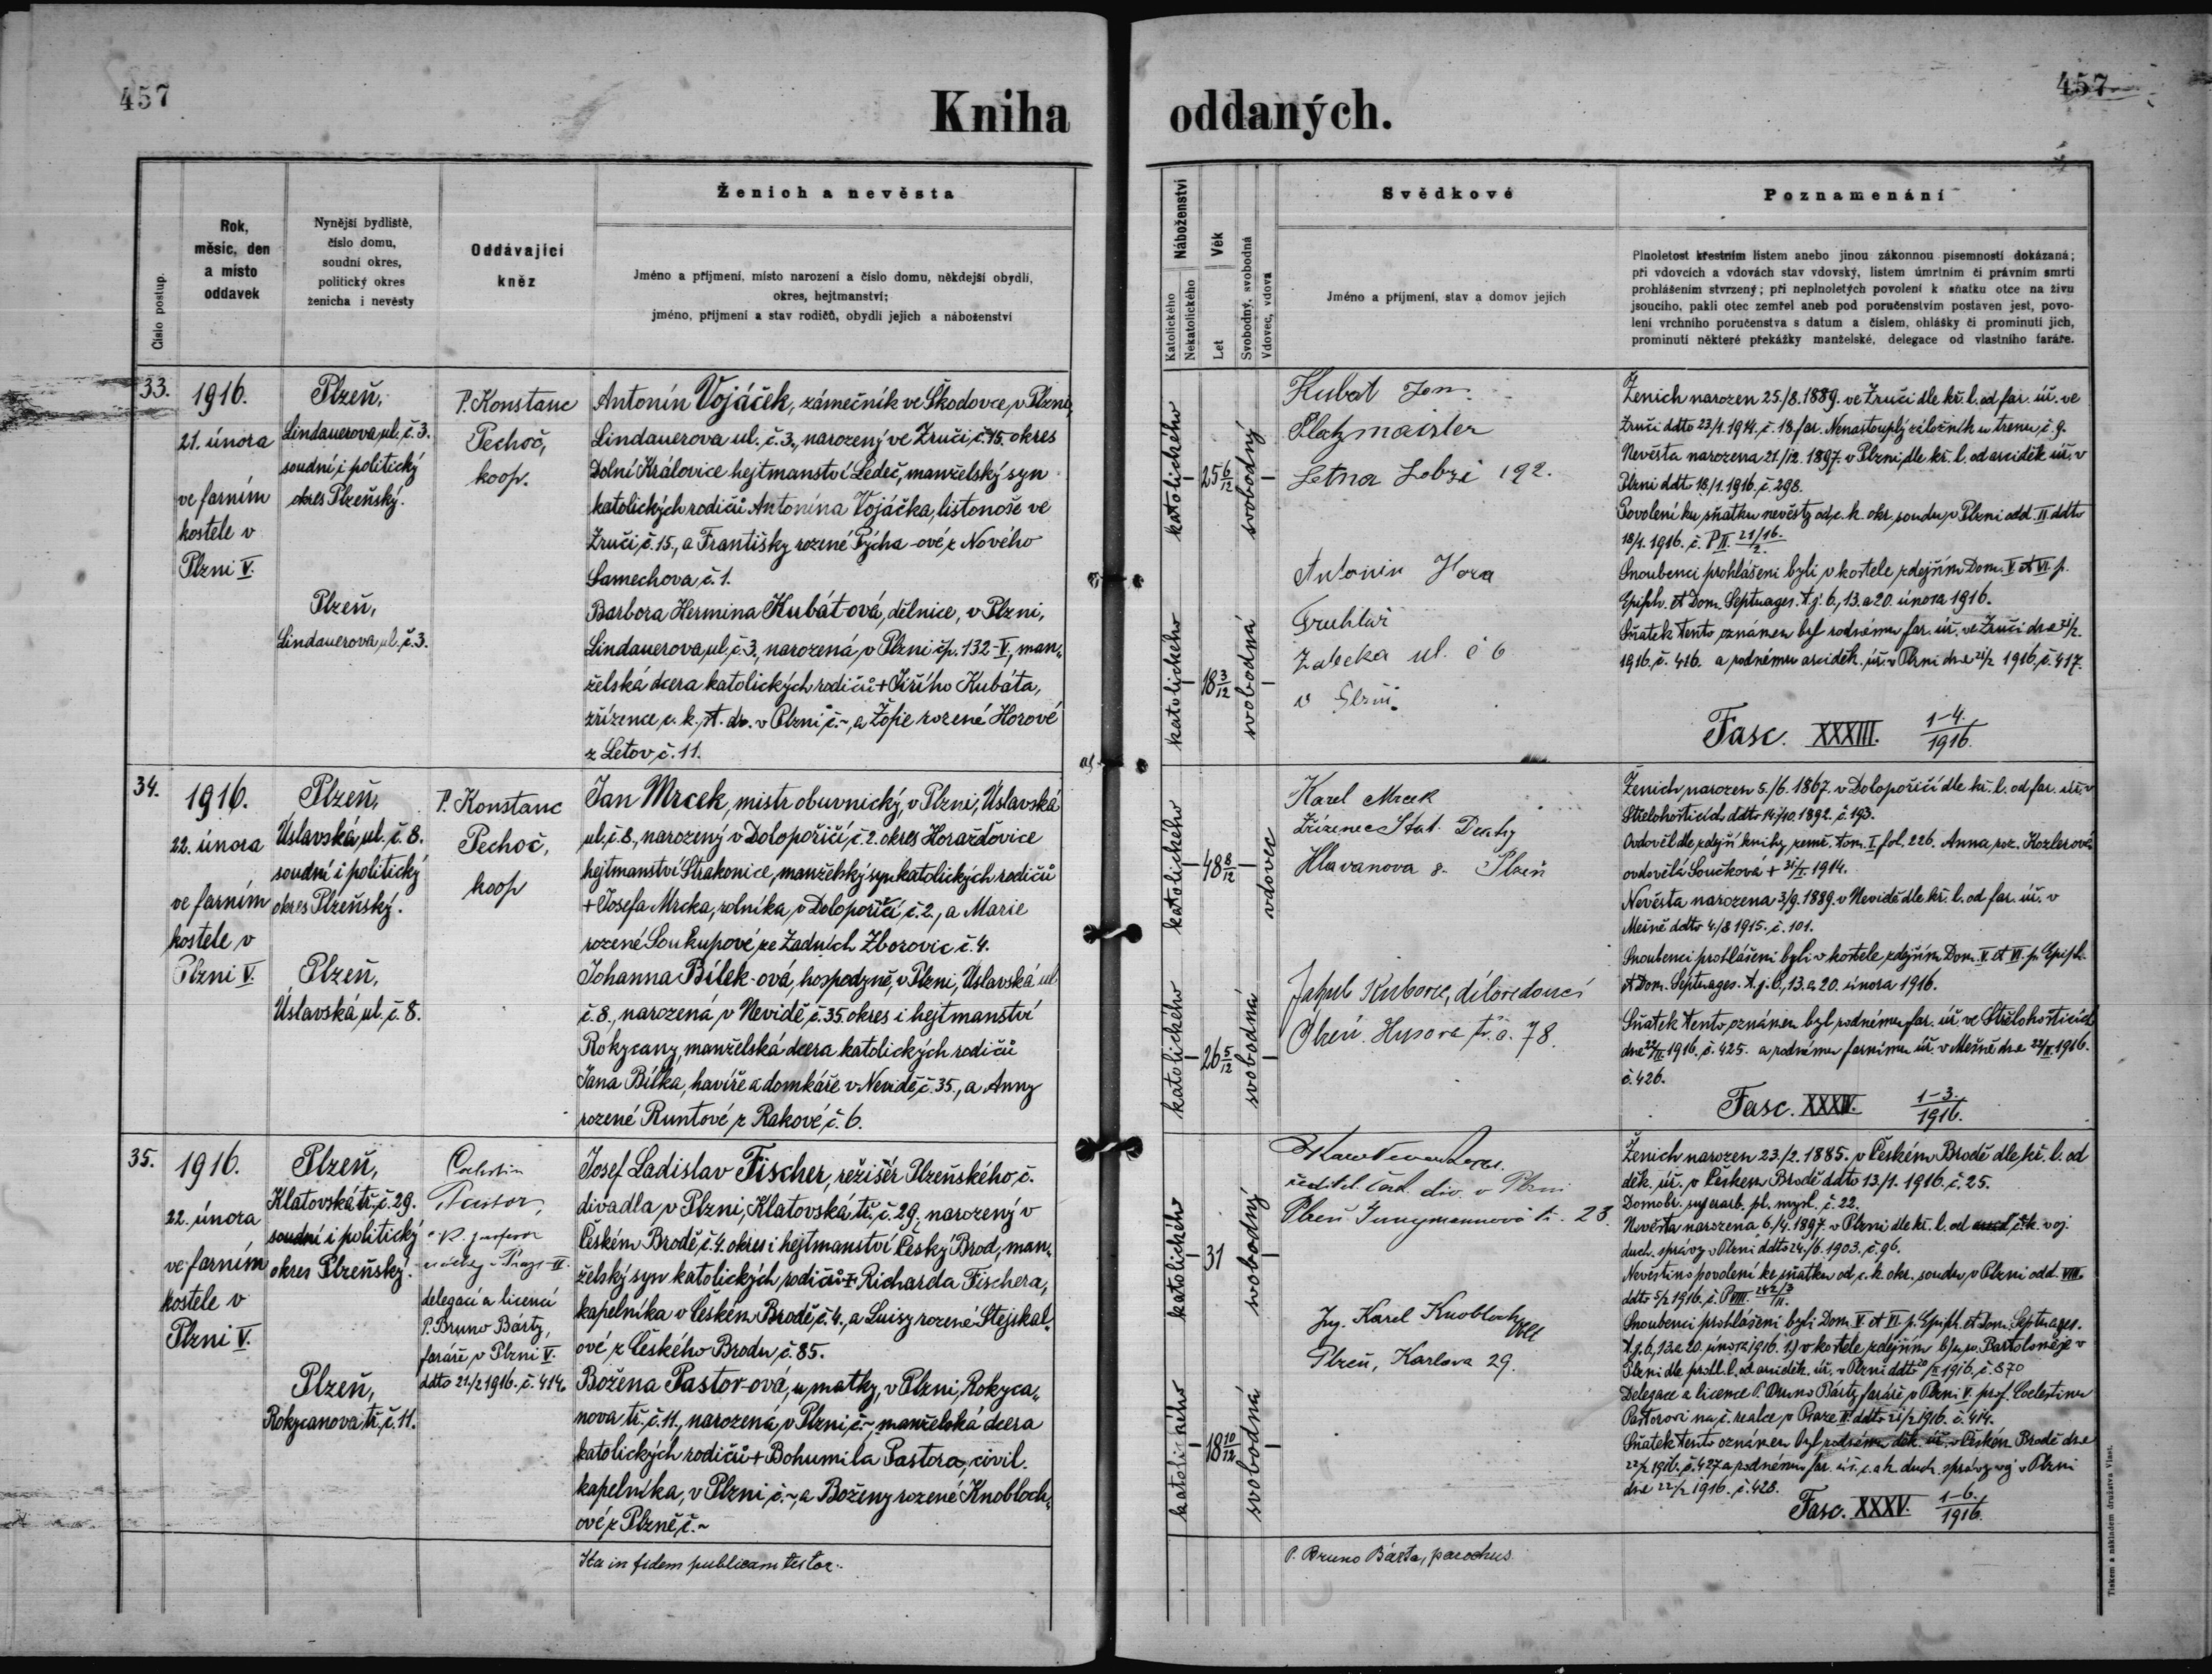 457
Kniha oddaných.
457
Číslo postup.
Rok,
měsíc, den
a místo
oddavek
Nynější bydliště,
číslo domu,
soudní okres,
politický okres
ženicha i nevěsty
Oddávající
kněz
Ženich a nevěsta
Jméno a příjmení, místo narození a číslo domu, někdejší obydlí,
okres, hejtmanství;
jméno, příjmení a stav rodičů, obydlí jejich a náboženství
Náboženství
Katolického
Nekatolického
Věk
Let
Svobodný, svobodná
Vdovec, vdova
Svědkové
Jméno a příjmení, stav a domov jejich
Poznamenání
Plnoletost křestním listem anebo jinou zákonnou písemností dokázaná;
při vdovcích a vdovách stav vdovský, listem úmrtním či právním smrti
prohlášením stvrzený; při neplnoletých povolení k sňatku otce na živu
jsoucího, pakli otec zemřel aneb pod poručenstvím postaven jest, povo-
lení vrchního poručenstva s datum a číslem, ohlášky či prominutí jich,
prominutí některé překážky manželské, delegace od vlastního faráře.
33.
1916.
21. února
ve farním
kostele v
Plzni V.
Plzeň,
Lindauerova ul. č. 3.
soudní i politický
okres Plzeňský.
Plzeň,
Lindauerova ul. č. 3.
P. Konstanc
Pechoč,
koop.
Antonín Vojáček, zámečník ve Škodovce, v Plzni,
Lindauerova ul. č. 3., narozený ve Zruči č. 15. okres
Dolní Královice hejtmanství Ledeč, manželský syn
katolických rodičů Antonína Vojáčka, listonoše ve
Zruči, č. 15., a Františky rozené Pýcha-ové z Nového
Samechova č. 1.
Barbora Hermina Kubát-ová, dělnice, v Plzni,
Lindauerova ul. č. 3., narozená v Plzni čp. 132-V., man„
želská dcera katolických rodičů + Jiřího Kubáta,
zřízence c. k. st. dr. v Plzni č. ~, a Žofie rozené Horové
z Letov č. 11.
katolického
25 6/12
svobodný
katolického
18 3/12
svobodná
Kubat Jan
Platzmaister
Letna Lobzi 192.
Antonin Hora
Truhlář
Žatecka ul. č 6
v Plzni.
Ženich narozen 25./8. 1889. ve Zruči dle kř. l. od far. úř. ve
Zruči ddto 23/1. 1914. č. 18. far. Nenastouplý záložník u trenu, č. 9.
Nevěsta narozena 21/12. 1897. v Plzni, dle kř. l. od arciděk. úř. v
Plzni ddto 18/1. 1916. č. 298.
Povolení ku sňatku nevěsty od c. k. okr. soudu v Plzni odd. II ddto
18/1. 1916. č. P II. 21/16./2.
Snoubenci prohlášeni byli v kostele zdejším Dom. V. et VI. p.
Epiph. et Dom. Septuages. t. j. 6., 13. a 20. února 1916.
Sňatek tento oznámen byl rodnému far. úř. ve Zruči dne 21/2.
1916. č. 416. a rodnému arciděk. úř. v Plzni dne 21/2 1916. č. 417.
Fasc. XXXIII. 1-4./1916.
34.
1916.
22. února
ve farním
kostele v
Plzni V.
Plzeň,
Úslavská ul. č. 8.
soudní i politický
okres Plzeňský.
Plzeň,
Úslavská ul. č. 8.
P. Konstanc
Pechoč,
koop
Jan Mrcek, mistr obuvnický, v Plzni, Úslavská
ul. č. 8., narozený v Dolopořičí, č. 2. okres Horažďovice
hejtmanství Strakonice, manželský syn katolických rodičů
+ Josefa Mrcka, rolníka, v Dolopořičí č. 2., a Marie
rozené Soukupové ze Zadních Zborovic č. 4.
Johanna Bílek-ová, hospodyně, v Plzni, Úslavská ul.
č. 8., narozená v Nevidě č. 35. okres i hejtmanství
Rokycany, manželská dcera katolických rodičů
Jana Bílka, havíře a domkáře v Nevidě, č. 35., a Anny
rozené Runtové z Rakové, č. 6.
katolického
48 8/12
vdovec
katolického
26 5/12
svobodná
Karel Mrcek
Zřízenec Stat. Drahy
Hlavanova 8. Plzeň
Plzeň. Husova tř. č. 78.
Ženich narozen 5./6. 1867. v Dolopořičí dle kř. l. od far. úř. v
Střelohošticích ddto 14./10. 1892. č. 193.
Ovdověl dle zdejší knihy zemř. tom. I. fol. 226. Anna roz. Kozlerová
ovdovělá Součková + 31/I. 1914.
Nevěsta narozena 3/9. 1889. v Nevidě dle kř. l. od far. úř. v
Mešně ddto 4./8 1915. č. 101.
Snoubenci prohlášeni byli v kostele zdejším Dom. V. et VI. p. Epiph.
et Dom. Septuages. t. j. 6., 13. a 20. února 1916.
Sňatek tento oznámen byl rodnému far. úř. ve Střelohošticích
dne 22/II. 1916. č. 425. a rodnému farnímu úř. v Mešně dne 22/II. 1916.
č. 426.
Fasc. XXXIV. 1-3./1916.
35.
1916.
22. února
ve farním
kostele v
Plzni V.
Plzeň,
Klatovská tř. č. 29.
soudní i politický
okres Plzeňský.
Plzeň,
Rokycanova tř. č. 11.
Coelestin
Pastor,
delegací a licencí
P. Bruno Bárty,
faráře v Plzni V.
ddto 21./2 1916. č. 414.
Josef Ladislav Fischer, režisér Plzeňského č.
divadla, v Plzni, Klatovská tř. č. 29., narozený v
Českém Brodě, č. 4. okres i hejtmanství Český Brod, man„
želský syn katolických rodičů + Richarda Fischera,
kapelníka v Českém Brodě, č. 4., a Luisy rozené Stejskal„
ové z Českého Brodu č. 85.
Božena Pastor-ová, u matky, v Plzni, Rokyca„
nova tř. č. 11., narozená v Plzni č. ~, manželská dcera
katolických rodičů + Bohumila Pastora, civil.
kapelníka, v Plzni č. ~, a Boženy rozené Knobloch„
ové z Plzně č. ~
katolického
31
svobodný
katolického
18 10/12
svobodná
ředitel česk. div. v Plzni
Plzeň Jungmannova tř. 23.
Ing. Karel Knobloch
Plzeň, Karlova 29.
Ženich narozen 23./2. 1885. v Českém Brodě dle kř. l. od
děk. úř. v Českém Brodě ddto 13/1. 1916. č. 25.
Nevěsta narozena 6./4. 1897. v Plzni dle kř. l. od c. k. voj.
duch. správy v Plzni ddto 24./6. 1903. č. 96.
Nevěstino povolení ke sňatku od c. k. okr. soudu v Plzni odd. VIII.
ddto 5/2 1916. č. P VIII.
Snoubenci prohlášeni byli Dom. V. et VI. p. Epiph. et Dom. Septuages.
t. j. 6., 13. a 20. února 1916. 1.) v kostele zdejším b) u sv. Bartoloměje v
Plzni dle prohl. l. od arciděk. úř. v Plzni ddto 20/II. 1916. č. 870
Delegace a licence P. Bruno Bárty, faráře v Plzni V. prof. Coelestinu
Pastorovi na č. realce v Praze II. ddto 21/2 1916. č. 414.
Sňatek tento oznámen byl rodnému děk. úř. v Českém Brodě dne
22/2 1916. č. 427 a rodnému far. úř. c. a k. duch. správy voj. v Plzni
dne 22/2 1916. č. 428.
Fasc. XXXV. 1-6./1916.
Ita in fidem publicam testor.
P. Bruno Bárta, parochus.
Tiskem a nákladem družstva Vlast.